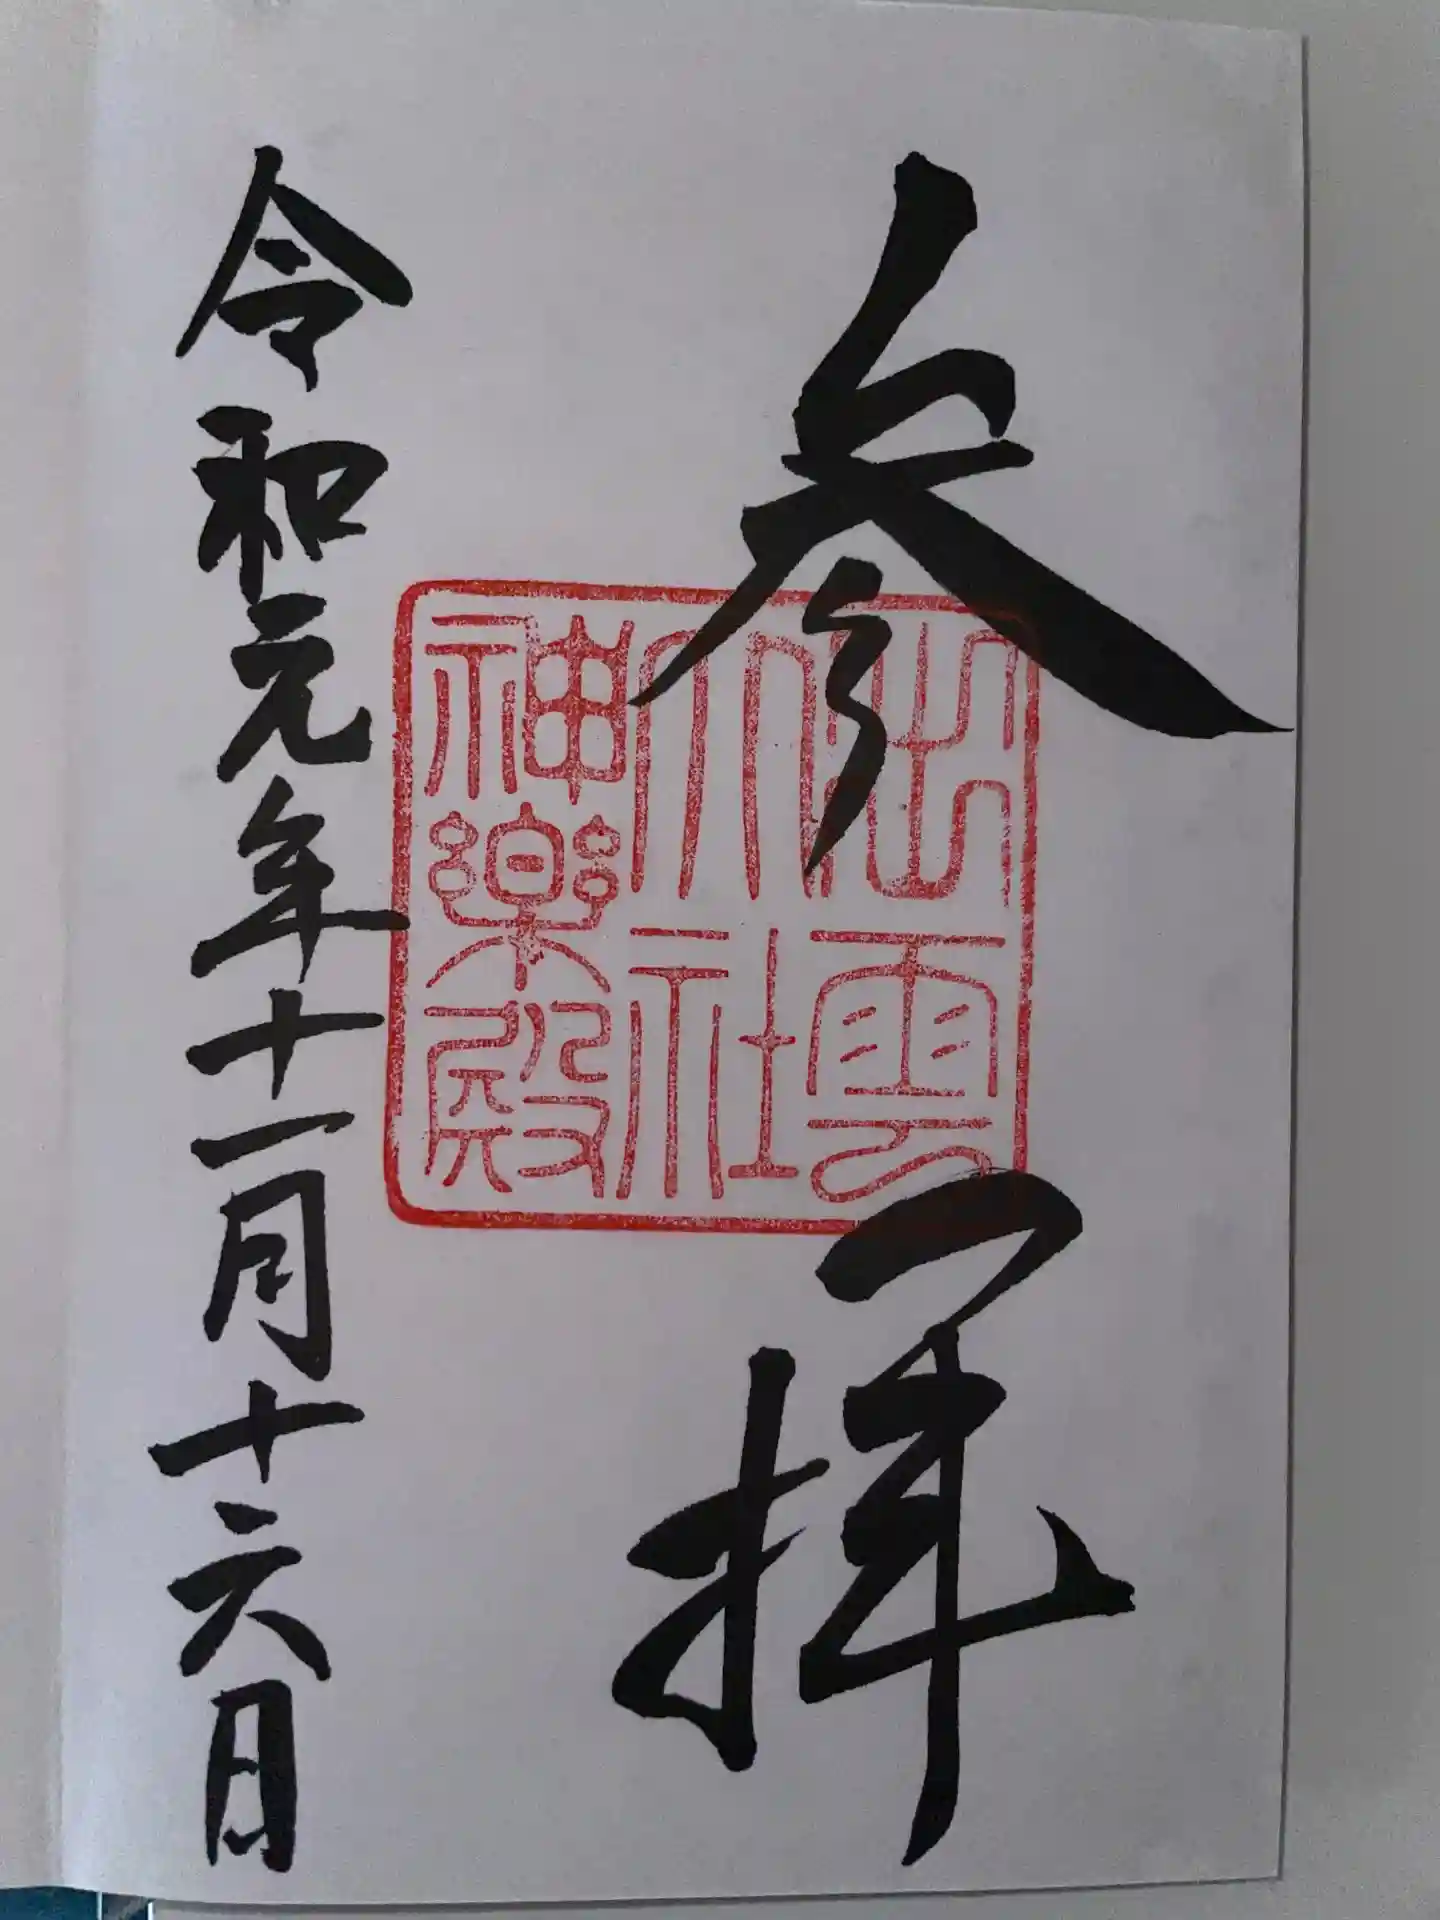 参拝
出雲大社神楽殿
令和元年十一月十六日